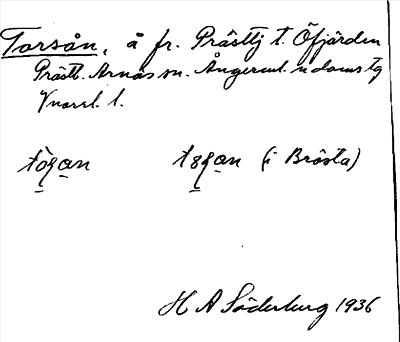 Torsån, å fr. Prästtj t. Öfjärden
Prästb. Arnäs sn. Ångerml. n doms tg
V norrl. l.
tòșan tșșan (i Brösta)
H A Söderburg 1936